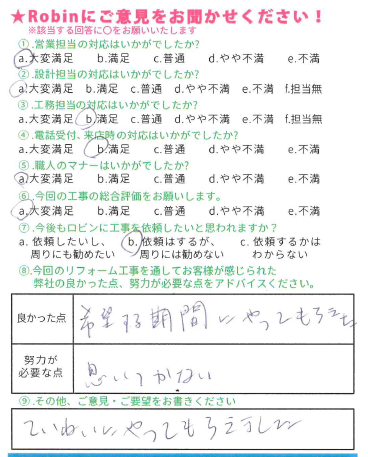 ★Robinにご意見をお聞かせください！
※該当する回答に○をお願いいたします
①.営業担当の対応はいかがでしたか?
a.大変満足 b.満足 c.普通 d.やや不満 e.不満
②.設計担当の対応はいかがでしたか?
a.大変満足 b.満足 c.普通 d.やや不満 e.不満 f.担当無
③.工務担当の対応はいかがでしたか?
a.大変満足 b.満足 c.普通 d.やや不満 e.不満 f.担当無
④.電話受付、来店時の対応はいかがでしたか?
a.大変満足 b.満足 c.普通 d.やや不満 e.不満
⑤.職人のマナーはいかがでしたか?
a.大変満足 b.満足 c.普通 d.やや不満 e.不満
⑥.今回の工事の総合評価をお願いします。
a.大変満足 b.満足 c.普通 d.やや不満 e.不満
⑦.今後もロビンに工事を依頼したいと思われますか？
a. 依頼したいし、 b.依頼はするが、 c. 依頼するかは
周りにも勧めたい 周りには勧めない わからない
⑧.今回のリフォーム工事を通してお客様が感じられた
弊社の良かった点、努力が必要な点をアドバイスください。
良かった点 希望する期間にやってもらえた
努力が
必要な点 思いつかない
⑨.その他、ご意見・ご要望をお書きください
ていねいにやってもらえました